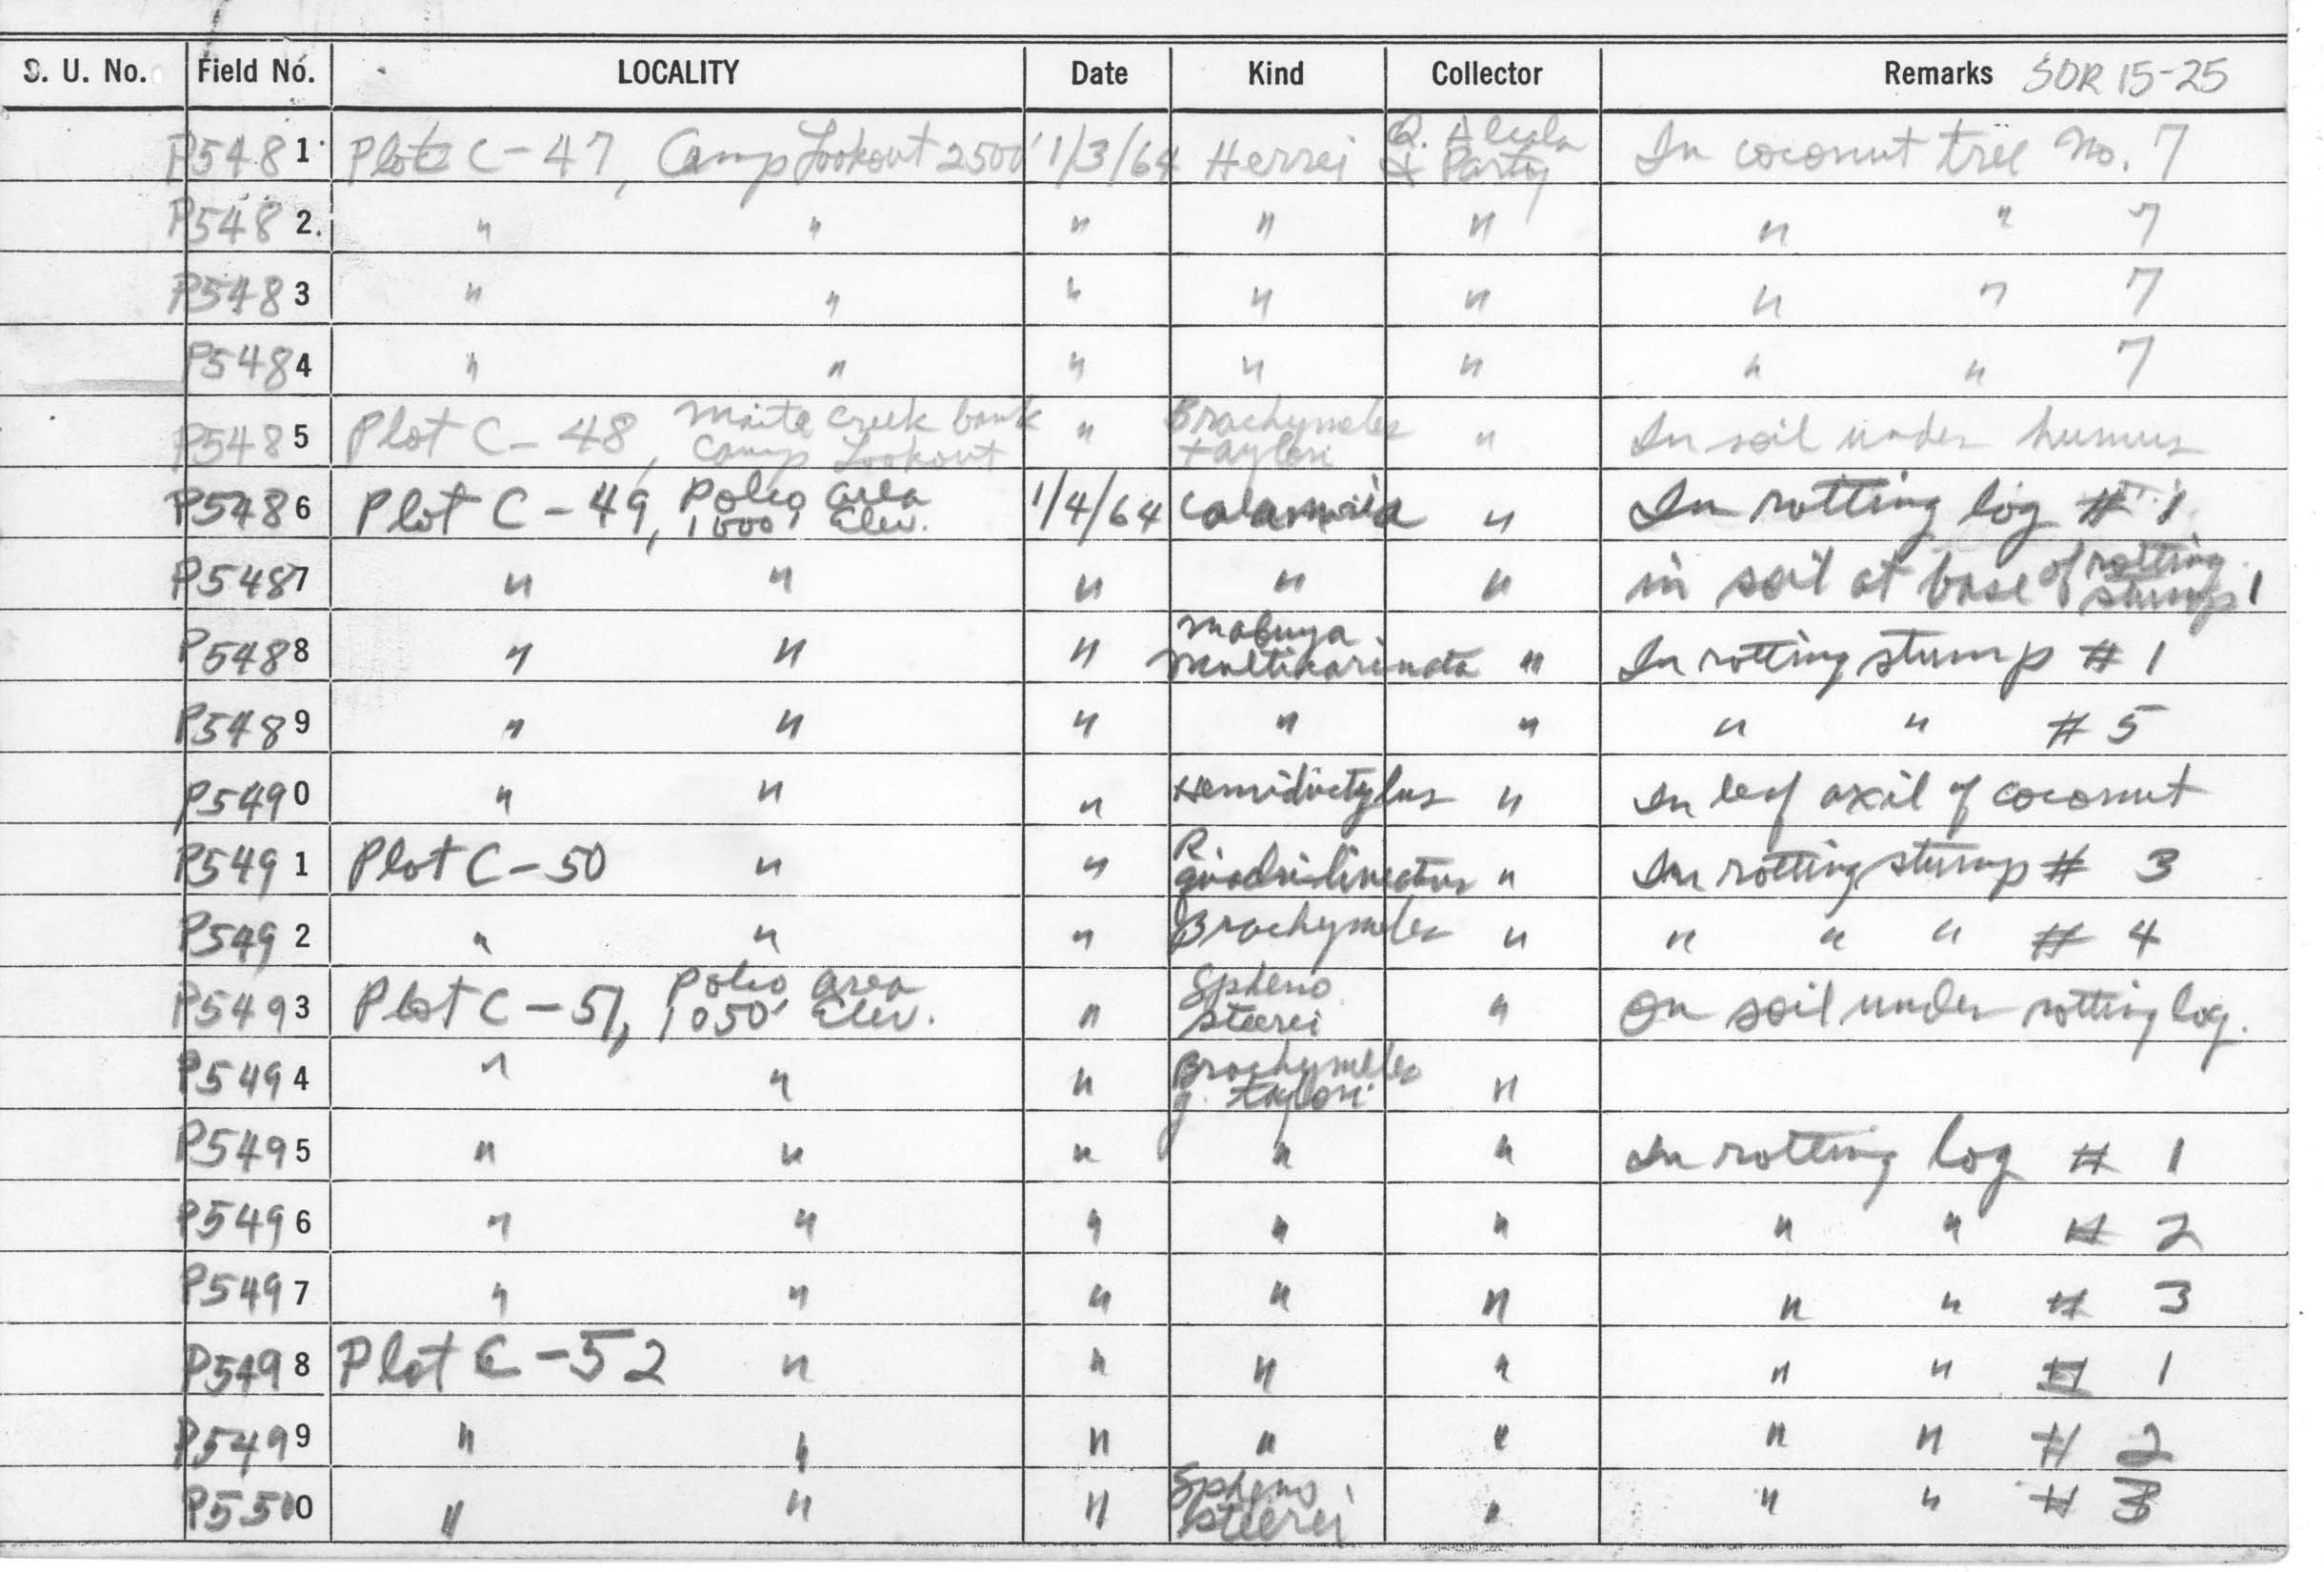 S. U. No. Field No. LOCALITY Date Kind Collector Remarks SOR 15-25
P5481 Plot C-47, Camp Lookout 2500' 1/3/64 Herrei Q. Alcala & Party In coconut tree No. 7
P5482. " " " " " " " 7
P5483 " " " " " " " 7
P5484 " " " " " " " 7
P5485 Plot C-48, Maite creek bank Camp Lookout " Brachymeles taylori " In soil under humus
P5486 Plot C-49, Polio area 1000' Elev. 1/4/64 Calamaria " In rotting log # 1
P5487 " " " " " in soil at base of rotting stump 1
P5488 " " " Mabuya multicarinata " In rotting stump # 1
P5489 " " " " " " " # 5
P5490 " " " Hemidactylus " In leaf axil of coconut
P5491 Plot C-50 " " R. quadrilineatus " In rotting stump # 3
P5492 " " " Brachymeles " " " " # 4
P5493 Plot C-51, Polio area 1050' Elev. " Spheno. steerei " On soil under rotting log.
P5494 " " " Brachymeles g. taylori "
P5495 " " " " " In rotting log # 1
P5496 " " " " " " " # 2
P5497 " " " " " " " # 3
P5498 Plot C-52 " " " " " " # 1
P5499 " " " " " " " # 2
P5500 " " " Spheno steerei " " " # 3